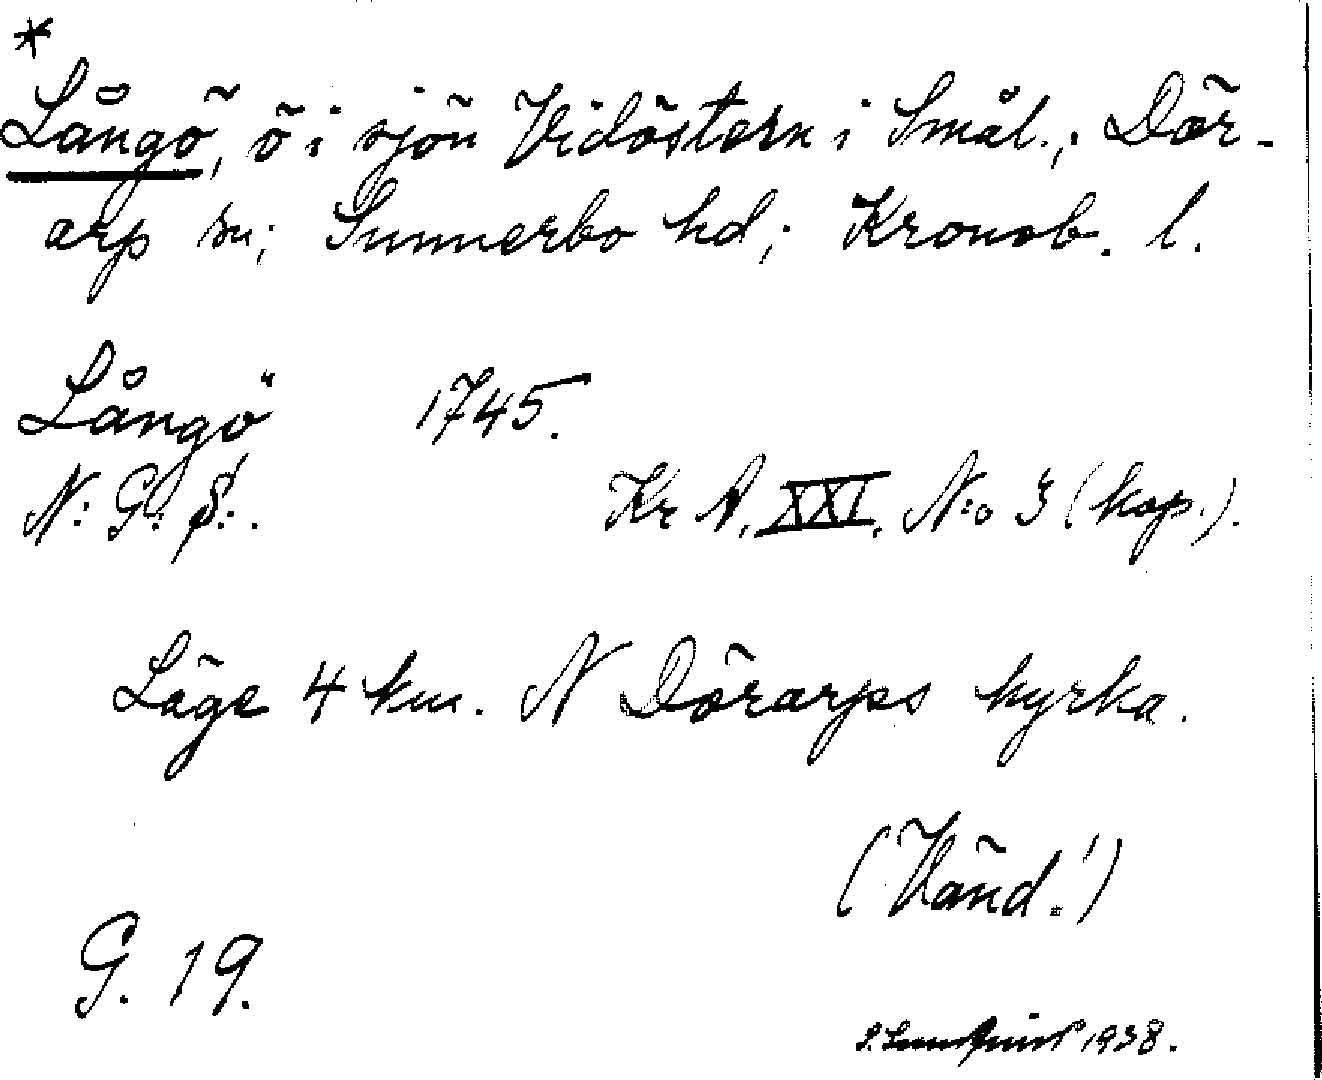 *
Långö, ö i sjön Vidöstern i Smål.; Dör-
arp sn; Sunnerbo hd; Kronob. l.
Långö 1745.
N: G: S:. Kr A. XXI. N:o 3 (kop.).
Läge 4 km. N Dörarps kyrka.
(Vänd!)
G. 19.
1938.